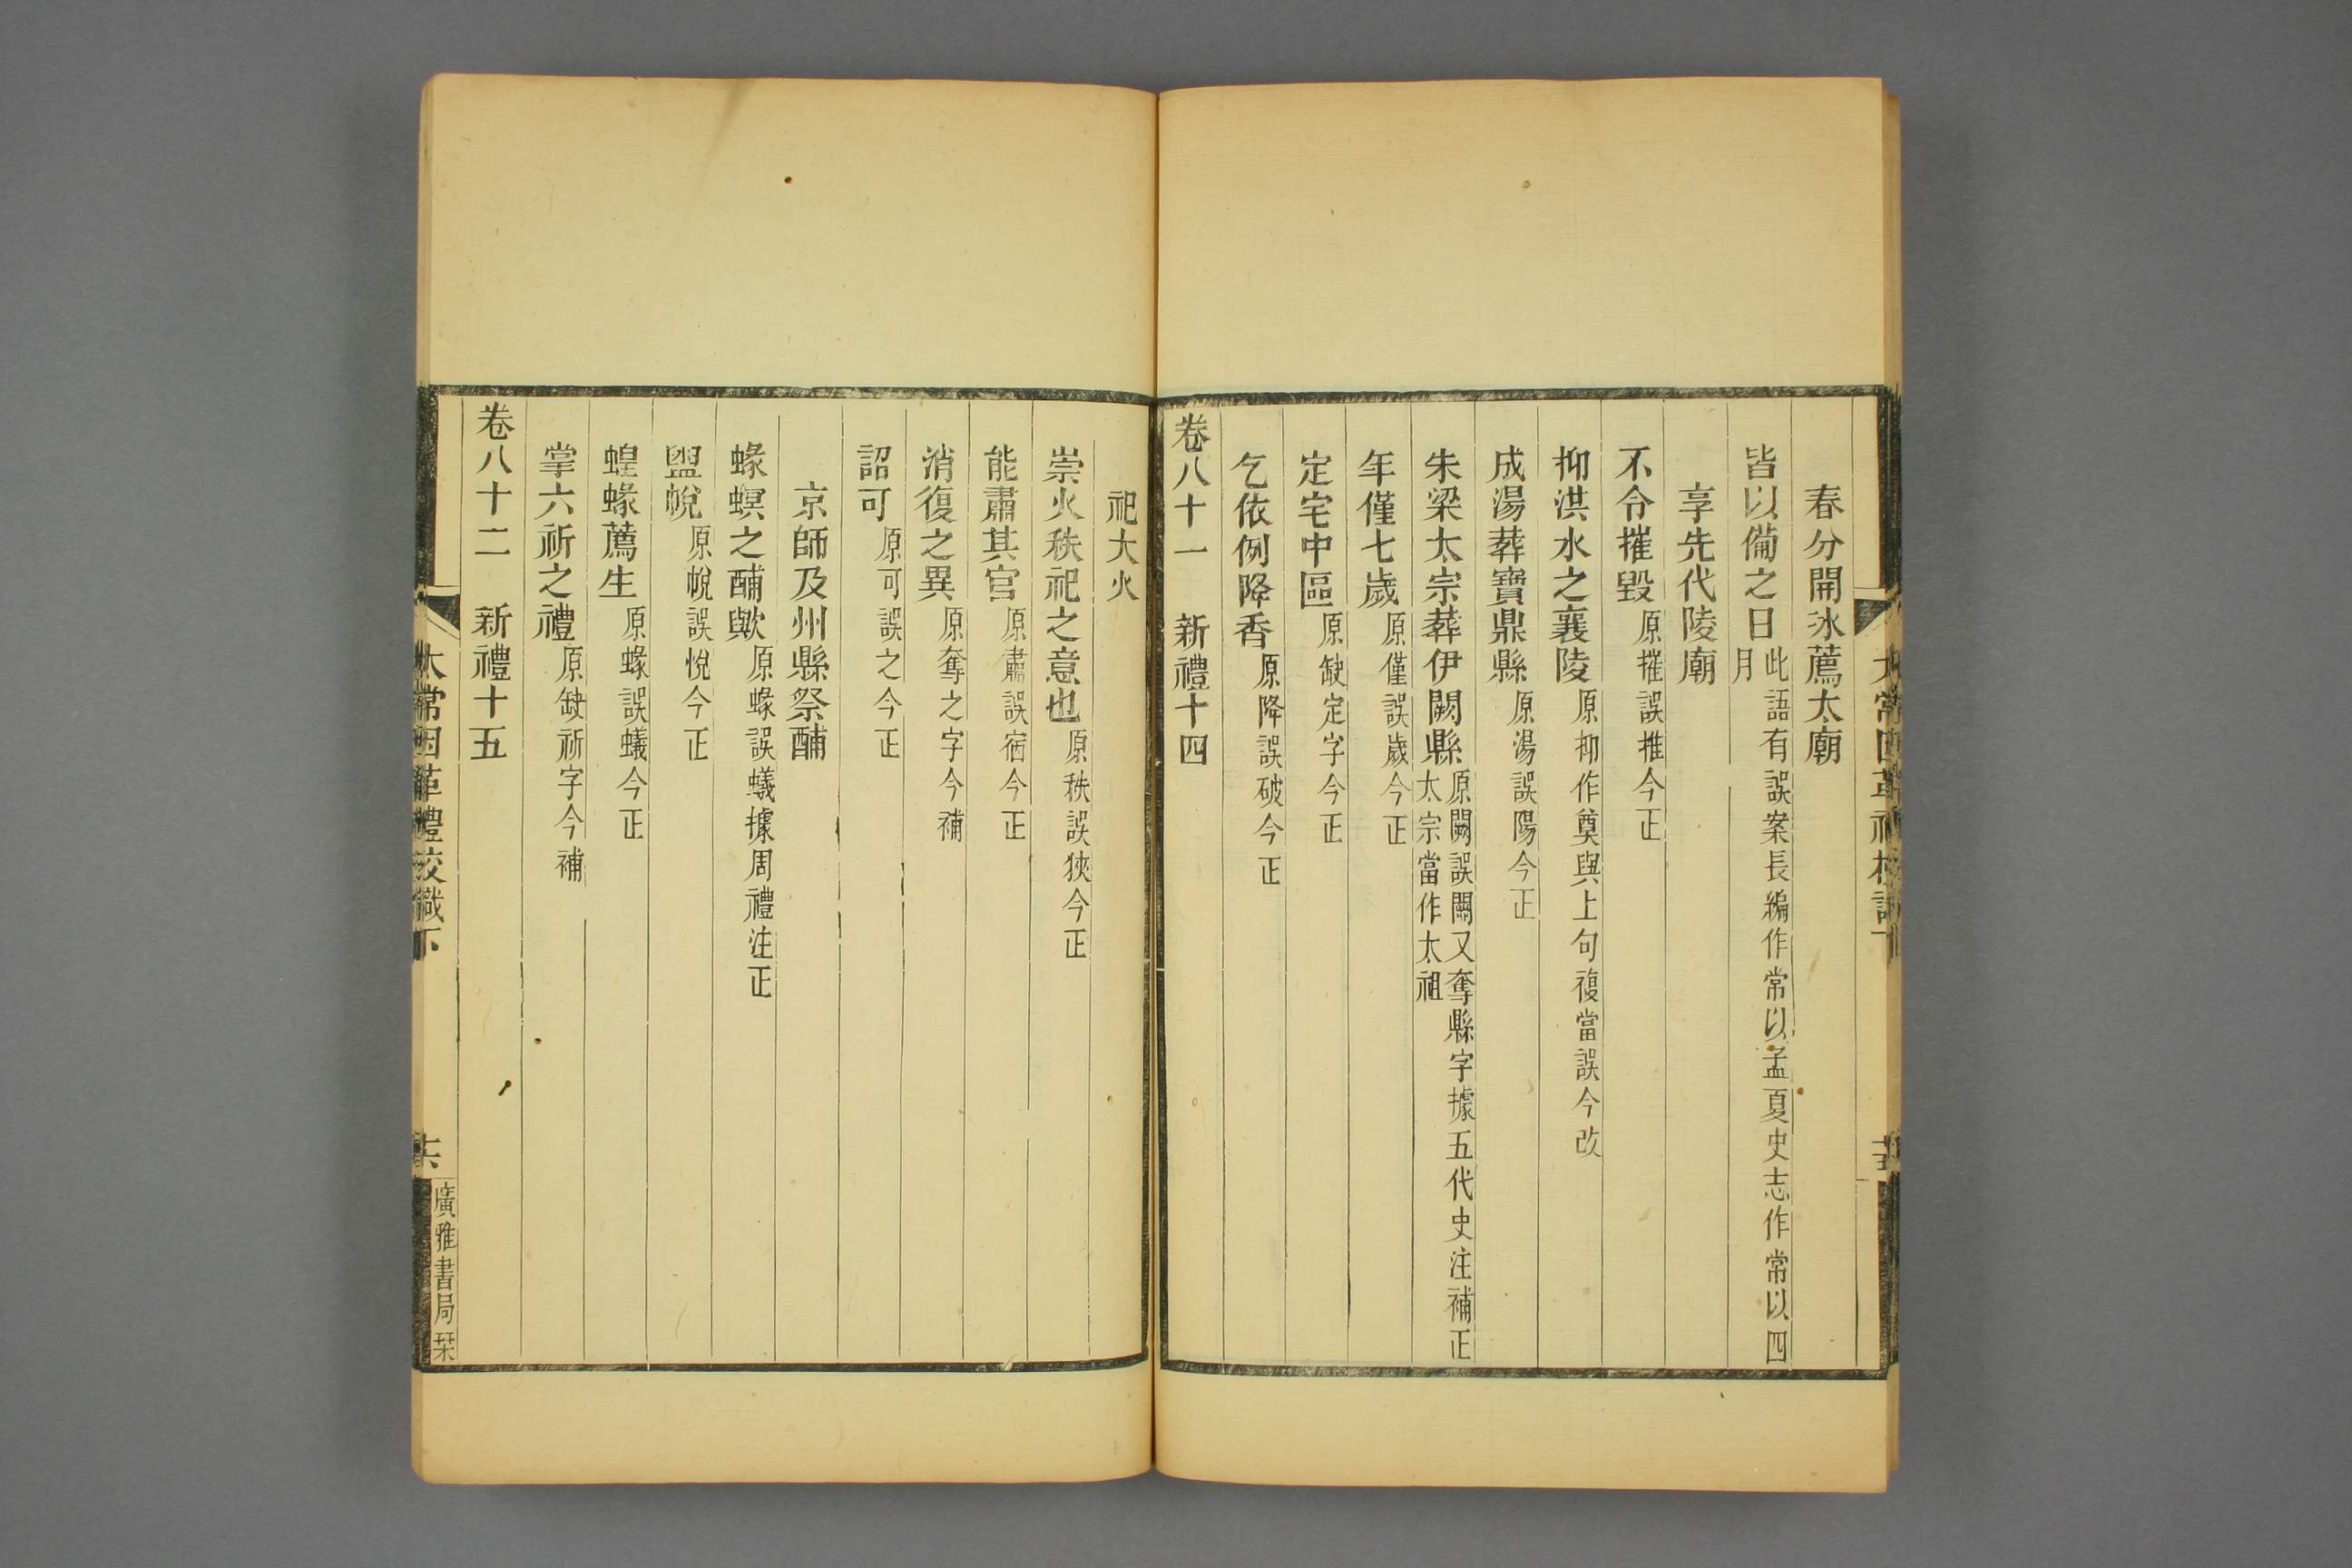 春分開冰薦太廟
皆以備之日此語有誤案長編作常以孟夏史志作常以四月
享先代陵廟
不令摧毀原摧誤推今正
抑洪水之襄陵原抑作奠與上句複當誤今改
成湯葬寶鼎縣原湯誤陽今正
朱梁太宗葬伊闕縣原闕誤關又奪縣字據五代史注補正太宗當作太祖
年僅七歲原僅誤歲今正
定宅中區原缺定字今正
乞依例降香原降誤破今正
卷八十一　新禮十四
祀大火
崇火秩祀之意也原秩誤狹今正
能肅其官原肅誤宿今正
消復之異原奪之字今補
詔可原可誤之今正
京師及州縣祭酺
蝝螟之酺歟原蝝誤蟻據周禮注正
盥帨原帨誤悅今正
蝗蝝薦生原蝝誤蟻今正
掌六祈之禮原缺祈字今補
卷八十二　新禮十五
太常因革禮校識下
十六
廣雅書局栞